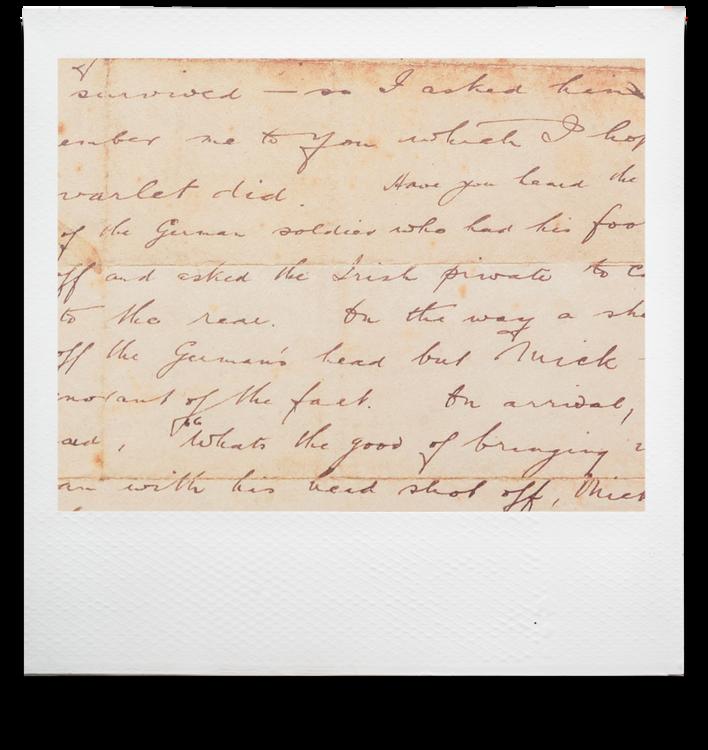 survived — so I asked him
ember me to you which I hop
varlet did. Have you heard the
of the German soldier who had his foo
off and asked the Irish private to c
to the rear. On the way a she
off the German's head but Mick
norant of the fact. On arrival,
aid, "Whats the good of bringing
an with his head shot off, Mick